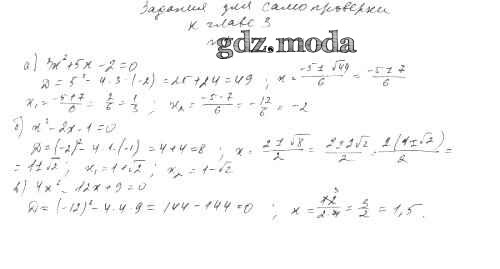 Задания для самопроверки
к главе 3
gdz.moda
а) 3x²+5x-2=0
D=5²-4·3·(-2)=25+24=49 ; x=(-5±√49)/6=(-5±7)/6
x₁=(-5+7)/6=2/6=1/3 ; x₂=(-5-7)/6=-12/6=-2
б) x²-2x-1=0
D=(-2)²-4·1·(-1)=4+4=8 ; x=(2±√8)/2=(2±2√2)/2=2(1±√2)/2=
=1±√2 ; x₁=1+√2 ; x₂=1-√2
в) 4x²-12x+9=0
D=(-12)²-4·4·9=144-144=0 ; x=12/(2·4)=3/2=1,5.